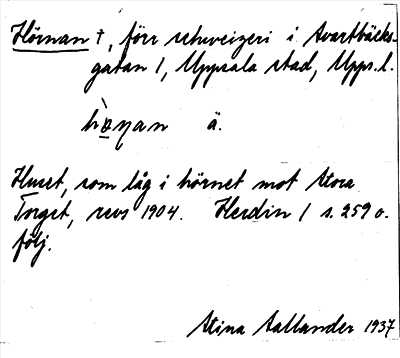 Hörnan †, förr schweizeri i Svartbäcks-
gatan 1, Uppsala stad, Upps.l.
hö̀ṇan ä.
Huset, som låg i hörnet mot Stora
Torget, revs 1904. Herdin 1 s. 259 o.
följ.
Stina Sallander 1937